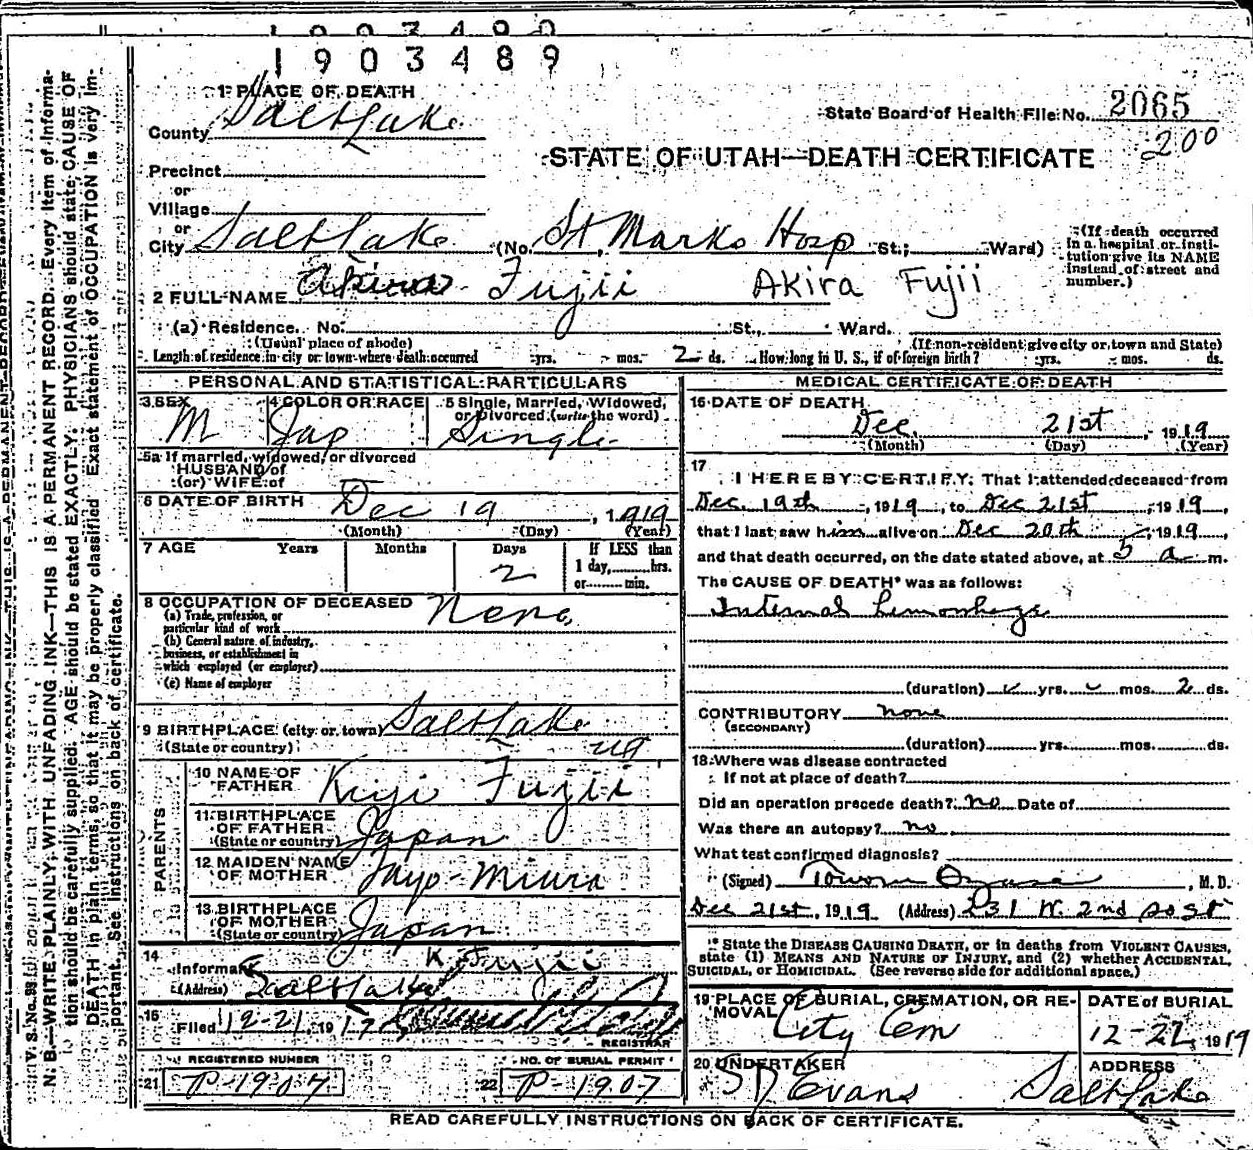 1903489
1 PLACE OF DEATH
County Salt Lake
State Board of Health File No. 2065
200
STATE OF UTAH—DEATH CERTIFICATE
Precinct
or
Village
or
City Salt Lake (No. St Marks Hosp St.; Ward)
(If death occurred in a hospital or institution give its NAME instead of street and number.)
2 FULL NAME Akira Fujii Akira Fujii
(a) Residence. No. St., Ward.
(Usual place of abode) (If non-resident give city or town and State)
Length of residence in city or town where death occurred yrs. mos. 2 ds. How long in U. S., if of foreign birth? yrs. mos. ds.
PERSONAL AND STATISTICAL PARTICULARS
3 SEX M
4 COLOR OR RACE Jap
5 Single, Married, Widowed, or Divorced (write the word) Single
5a If married, widowed, or divorced
HUSBAND of
(or) WIFE of
6 DATE OF BIRTH Dec 19, 1919
(Month) (Day) (Year)
7 AGE Years Months Days 2 If LESS than 1 day, hrs. or min.
8 OCCUPATION OF DECEASED None
(a) Trade, profession, or particular kind of work
(b) General nature of industry, business, or establishment in which employed (or employer)
(c) Name of employer
9 BIRTHPLACE (city or town) Salt Lake
(State or country) Ut
PARENTS
10 NAME OF FATHER Kiji Fujii
11 BIRTHPLACE OF FATHER (State or country) Japan
12 MAIDEN NAME OF MOTHER Miura
13 BIRTHPLACE OF MOTHER (State or country) Japan
14 Informant K Fujii
(Address) Salt Lake
15 Filed 12-21, 191
REGISTRAR
REGISTERED NUMBER
21 P-1907
NO. OF BURIAL PERMIT
22 P-1907
MEDICAL CERTIFICATE OF DEATH
16 DATE OF DEATH
Dec. 21st, 1919
(Month) (Day) (Year)
17 I HEREBY CERTIFY, That I attended deceased from
Dec. 19th, 1919, to Dec 21st, 1919,
that I last saw him alive on Dec 20th, 1919,
and that death occurred, on the date stated above, at 5 a m.
The CAUSE OF DEATH* was as follows:
Internal hemorrhage
(duration) yrs. mos. 2 ds.
CONTRIBUTORY none
(SECONDARY)
(duration) yrs. mos. ds.
18 Where was disease contracted
If not at place of death?
Did an operation precede death? no Date of
Was there an autopsy? no
What test confirmed diagnosis?
(Signed) , M. D.
Dec 21st, 1919 (Address) 231 W. 2nd So St
* State the DISEASE CAUSING DEATH, or in deaths from VIOLENT CAUSES, state (1) MEANS AND NATURE OF INJURY, and (2) whether ACCIDENTAL, SUICIDAL, or HOMICIDAL. (See reverse side for additional space.)
19 PLACE OF BURIAL, CREMATION, OR REMOVAL City Cem
DATE of BURIAL 12-22, 1919
20 UNDERTAKER S D Evans
ADDRESS Salt Lake
READ CAREFULLY INSTRUCTIONS ON BACK OF CERTIFICATE.
N. B.—WRITE PLAINLY, WITH UNFADING INK—THIS IS A PERMANENT RECORD. Every item of information should be carefully supplied. AGE should be stated EXACTLY. PHYSICIANS should state CAUSE OF DEATH in plain terms, so that it may be properly classified. Exact statement of OCCUPATION is very important. See instructions on back of certificate.